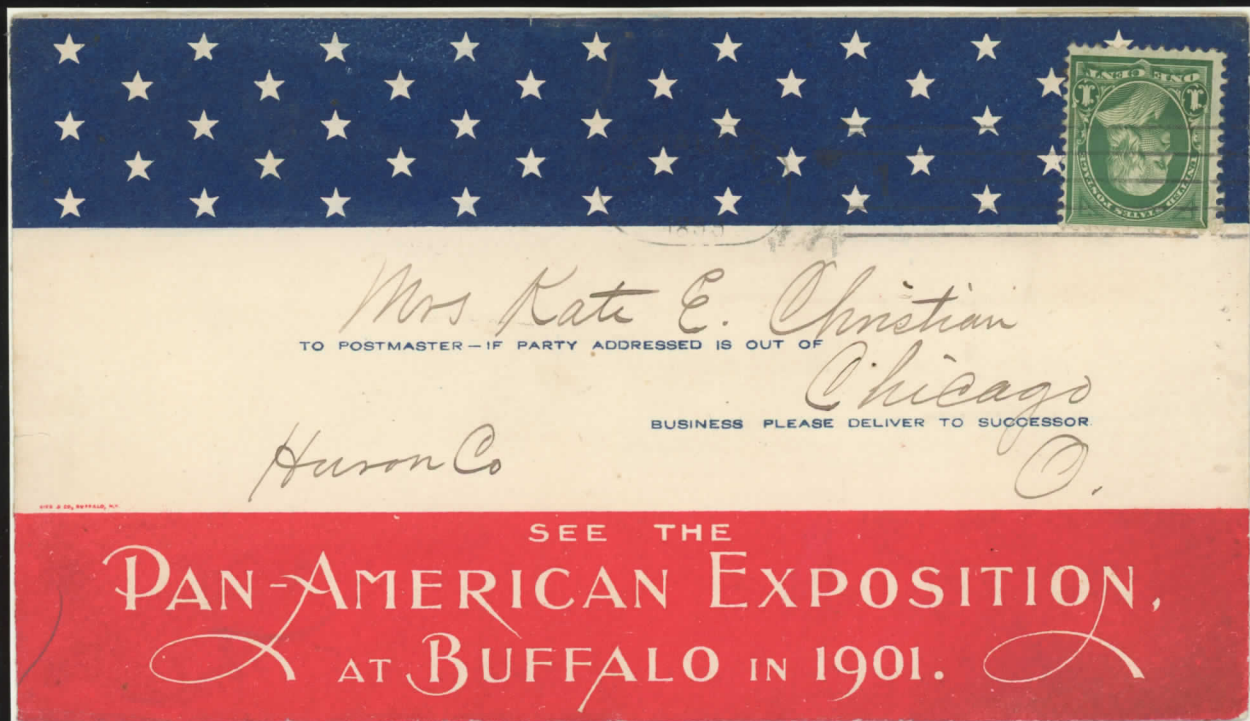 ONE CENT
1 1
UNITED STATES POSTAGE
Mrs Kate E. Christian
TO POSTMASTER—IF PARTY ADDRESSED IS OUT OF
Chicago
BUSINESS PLEASE DELIVER TO SUCCESSOR
Huron Co
O.
BUFFALO, N.Y.
SEE THE
PAN-AMERICAN EXPOSITION,
AT BUFFALO IN 1901.